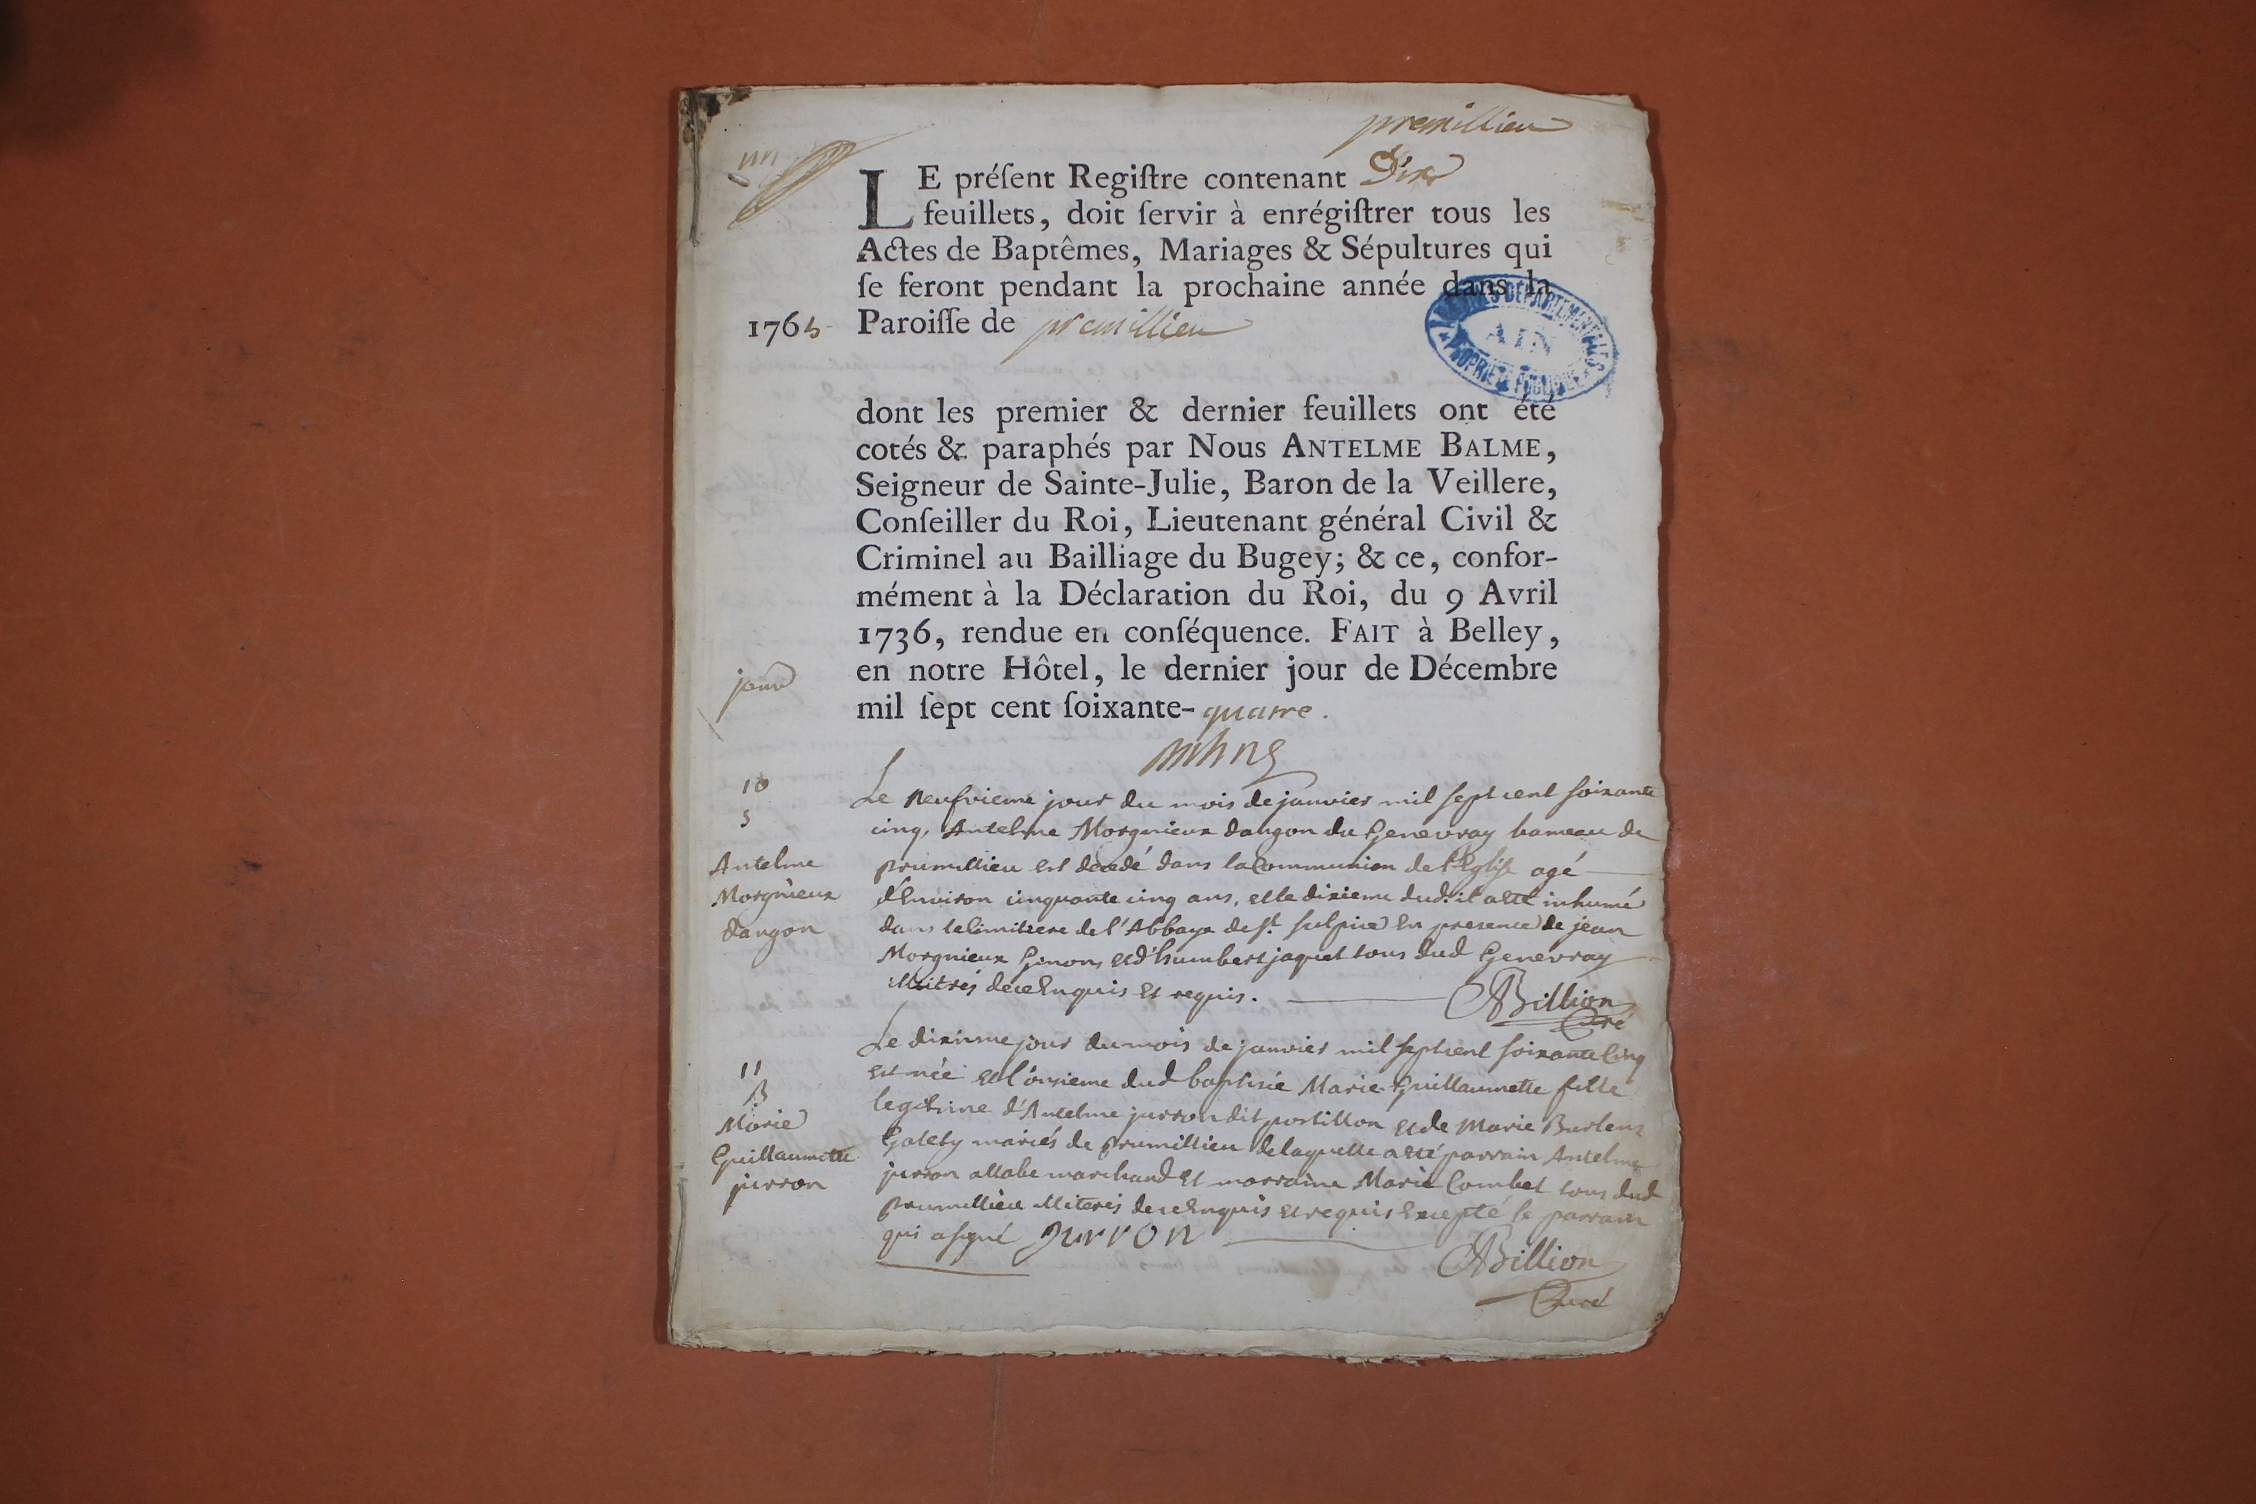 premillieu
un
LE préſent Regiſtre contenant Dix
feuillets, doit ſervir à enrégiſtrer tous les
Actes de Baptêmes, Mariages & Sépultures qui
ſe feront pendant la prochaine année dans la
1765 Paroiſſe de premillieu
ARCHIVES DEPARTEMENTALES
AIN
PROPRIETE PUBLIQUE
dont les premier & dernier feuillets ont été
cotés & paraphés par Nous ANTELME BALME,
Seigneur de Sainte-Julie, Baron de la Veillere,
Conſeiller du Roi, Lieutenant général Civil &
Criminel au Bailliage du Bugey; & ce, confor-
mément à la Déclaration du Roi, du 9 Avril
1736, rendue en conſéquence. FAIT à Belley,
en notre Hôtel, le dernier jour de Décembre
mil ſept cent ſoixante-quatre.
janv
10
s
Antelme
Morgnieux
dangon
Le neufvieme jour du mois de janvier mil sept cent soixante
cinq, Antelme Morgnieux dangon du Genevray hameau de
prumillieu est décédé dans la Communion de l'Eglise agé
d'Environ cinquante cinq ans, et le dixieme dud. il a eté inhumé
dans le Cimitiere de l'Abbaye de st. sulpice En presence de jean
Morgnieux Ginon, et d'humbert jaquet tous dud Genevray
illitrés de ce Enquis Et requis.
Billion
Curé
11
B
Marie
Guillaumette
jurron
Le dixieme jour du mois de janvier mil sept cent soixante Cinq
est née et l'onzieme dud baptisée Marie Guillaumette fille
legitime d'Antelme jurron dit postillon et de Marie
mariés de prumillieu de laquelle a eté parrain Antelme
jurron marchand Et marraine Marie Combet tous dud
prumillieu illiterés de ce Enquis et requis Excepté le parrain
qui a signé Jurron
Billion
Curé